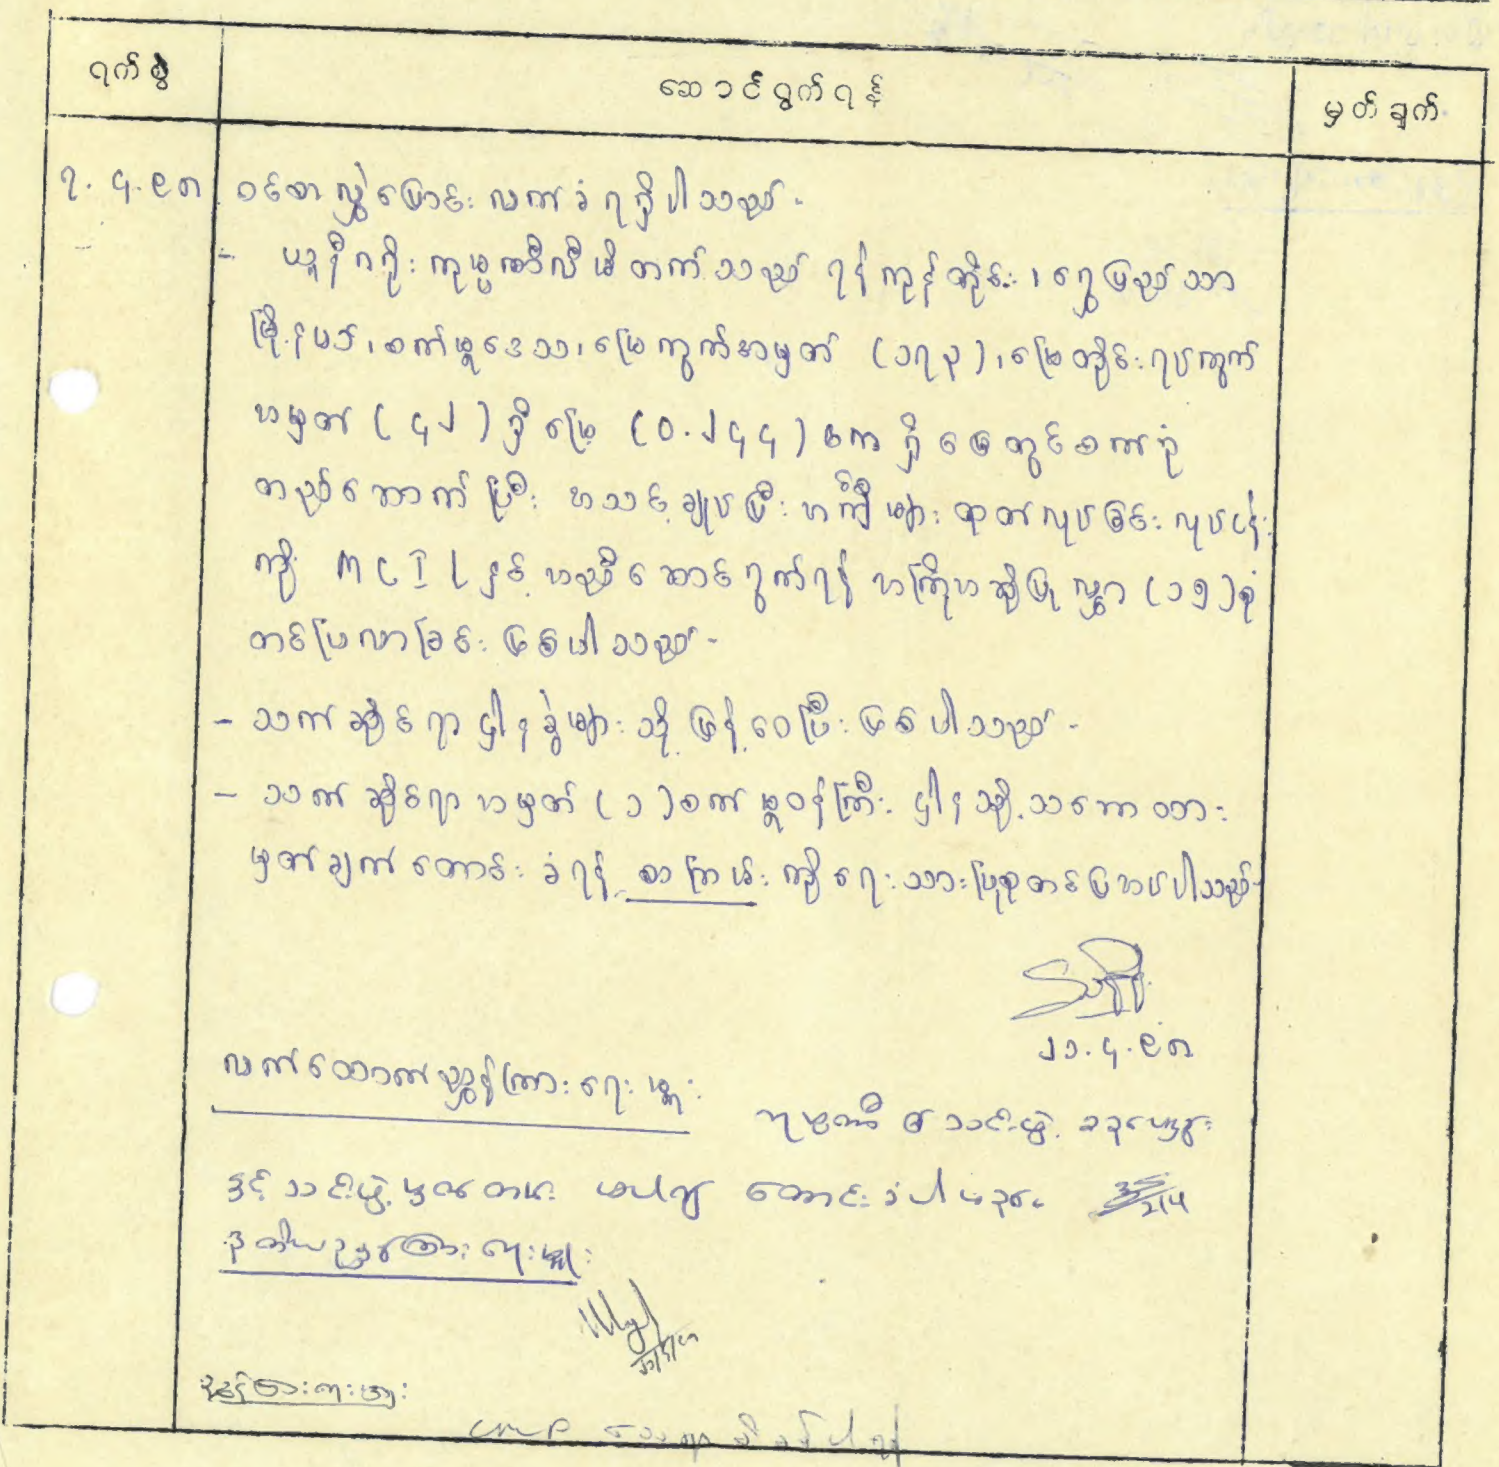 ရက်စွဲ ဆောင်ရွက်ရန် မှတ်ချက်
၇.၄.၉၈ ဝင်စာလွှဲပြောင်းလက်ခံရရှိပါသည်-
- ကုမ္ပဏီလီမိတက်သည် ရန်ကုန်တိုင်း၊ ရွှေပြည်သာ
မြို့နယ်၊ စက်မှုဒေသ၊ မြေကွက်အမှတ် (၁၇၃)၊ မြေတိုင်းရပ်ကွက်
အမှတ် (၄၂) ရှိ မြေ (၀.၂၄၄) ဧက ရှိ မြေတွင် စက်ရုံ
တည်ဆောက်ပြီး အသင့်ချုပ်ပြီး အင်္ကျီများ ထုတ်လုပ်ခြင်း လုပ်ငန်း
ကို MCIL နှင့်အညီ ဆောင်ရွက်ရန် အကြိုအဆိုပြုလွှာ (၁၅) စုံ
တင်ပြလာခြင်း ဖြစ်ပါသည်-
- သက်ဆိုင်ရာ ဌာနခွဲများသို့ ဖြန့်ဝေပြီး ဖြစ်ပါသည်-
- သက်ဆိုင်ရာ အမှတ် (၁) စက်မှုဝန်ကြီးဌာနသို့ သဘောထား
မှတ်ချက် တောင်းခံရန် စာကြမ်းကို ရေးသားပြုစုတင်ပြအပ်ပါသည်-
၂၁.၄.၉၈
လက်ထောက်ညွှန်ကြားရေးမှူး
ကုမ္ပဏီ
နှင့် သင်းဖွဲ့မှတ်တမ်း တောင်းခံပါမည်။
ဒုတိယညွှန်ကြားရေးမှူး
ညွှန်ကြားရေးမှူး